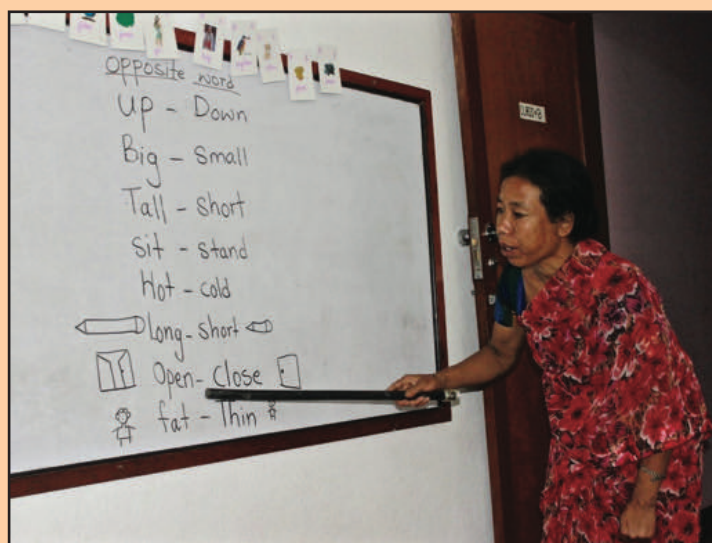 Opposite word
Up - Down
Big - Small
Tall - Short
Sit - stand
Hot - cold
Long - short
Open - Close
fat - Thin